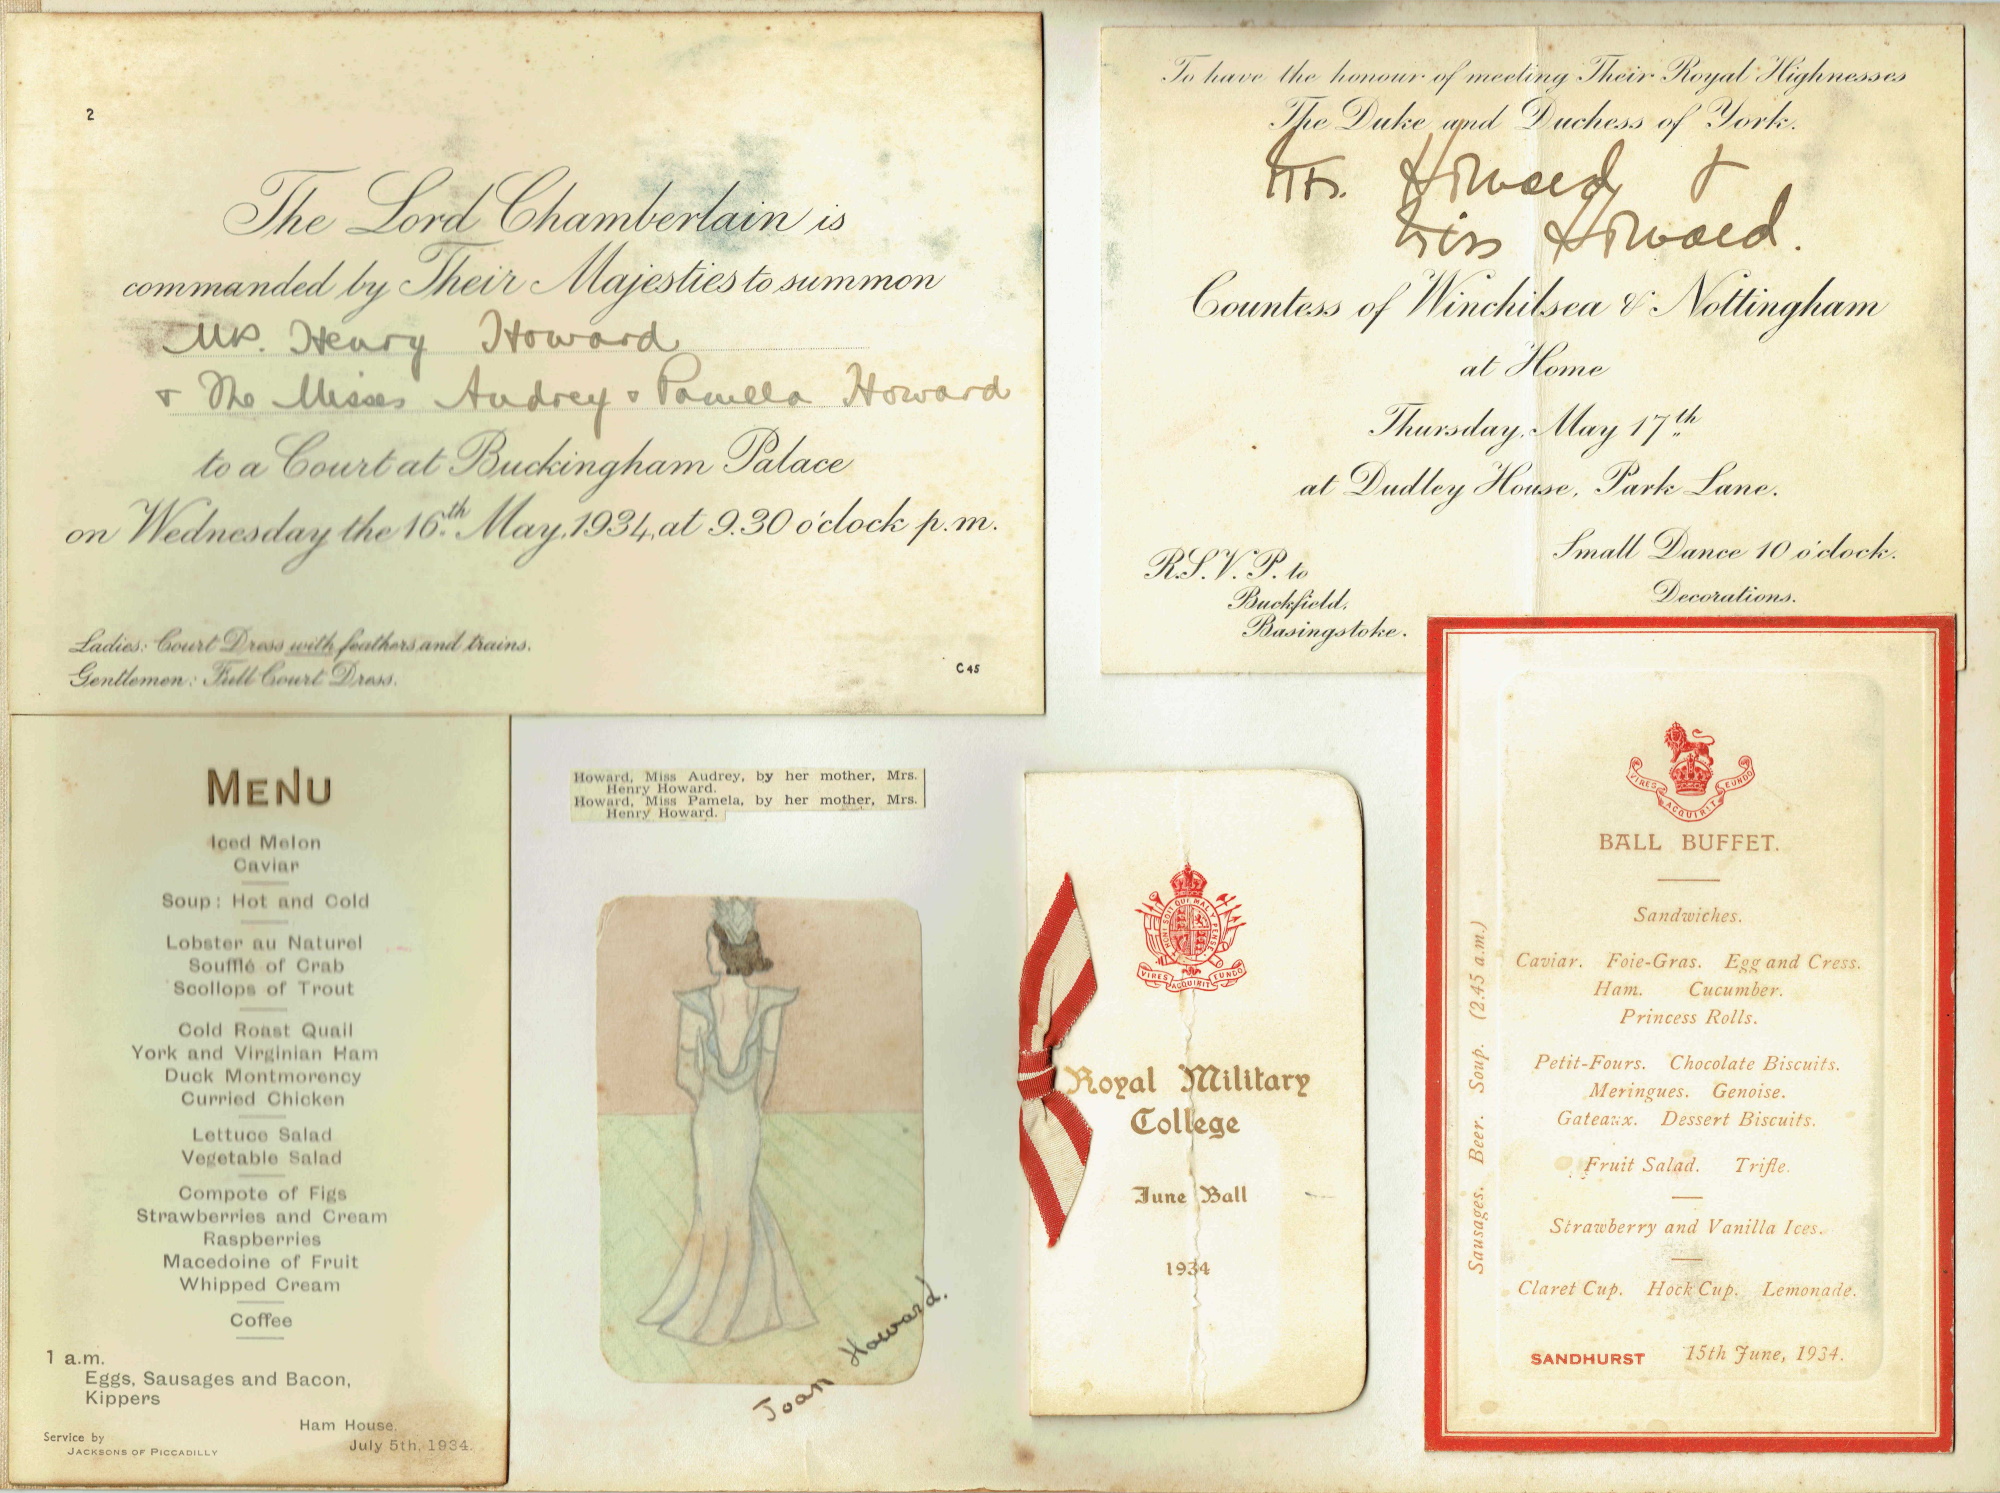 2
The Lord Chamberlain is
commanded by Their Majesties to summon
Mrs. Henry Howard
& The Misses Audrey & Pamella Howard
to a Court at Buckingham Palace
on Wednesday the 16th May, 1934, at 9.30 o'clock p.m.
Ladies: Court Dress with feathers and trains.
Gentlemen: Full Court Dress.
C 45
To have the honour of meeting Their Royal Highnesses
The Duke and Duchess of York.
Mrs. Howard &
Miss Howard.
Countess of Winchilsea & Nottingham
at Home
Thursday, May 17th
at Dudley House, Park Lane.
Small Dance 10 o'clock.
Decorations.
R.S.V.P. to
Buckfield,
Basingstoke.
MENU
Iced Melon
Caviar
Soup: Hot and Cold
Lobster au Naturel
Soufflé of Crab
Scollops of Trout
Cold Roast Quail
York and Virginian Ham
Duck Montmorency
Curried Chicken
Lettuce Salad
Vegetable Salad
Compote of Figs
Strawberries and Cream
Raspberries
Macedoine of Fruit
Whipped Cream
Coffee
1 a.m.
Eggs, Sausages and Bacon,
Kippers
Ham House,
July 5th, 1934.
Service by
JACKSONS OF PICCADILLY
Howard, Miss Audrey, by her mother, Mrs.
Henry Howard.
Howard, Miss Pamela, by her mother, Mrs.
Henry Howard.
Joan Howard.
HONI SOIT QUI MAL Y PENSE
VIRES ACQUIRIT EUNDO
Royal Military
College
June Ball
1934
VIRES ACQUIRIT EUNDO
BALL BUFFET.
Sandwiches.
Caviar. Foie-Gras. Egg and Cress.
Ham. Cucumber.
Princess Rolls.
Petit-Fours. Chocolate Biscuits.
Meringues. Genoise.
Gateaux. Dessert Biscuits.
Fruit Salad. Trifle.
Strawberry and Vanilla Ices.
Claret Cup. Hock Cup. Lemonade.
SANDHURST 15th June, 1934.
Sausages. Beer. Soup. (2.45 a.m.)